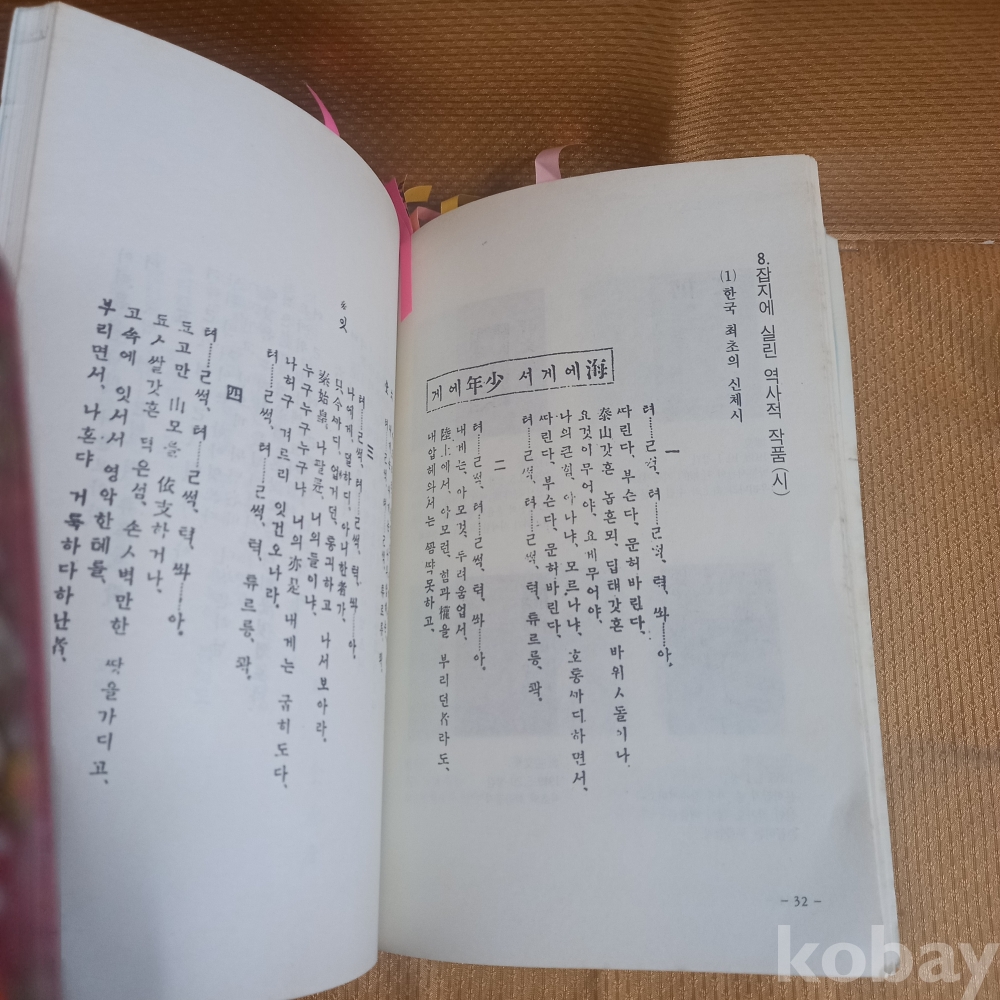 8. 잡지에 실린 역사적 작품 (시)
(1) 한국 최초의 신체시
海에게서 少年에게
一
텨……ㄹ썩, 텨……ㄹ썩, 텩, 쏴……아.
따린다, 부슨다, 문허바린다,
泰山갓흔 놉흔뫼, 딥태갓흔 바위ㅅ돌이나,
요것이무어야, 요게무어야,
나의큰힘, 아나냐, 모르나냐, 호통까디하면서,
따린다, 부슨다, 문허바린다,
텨……ㄹ썩, 텨……ㄹ썩, 텩, 튜르릉, 콱.
二
텨……ㄹ썩, 텨……ㄹ썩, 텩, 쏴……아.
내게는, 아모것, 두려움업서,
陸上에서, 아모런, 힘과權을 부리던者라도,
내압헤와서는 꼼땩못하고,
- 32 -
三
텨……ㄹ썩, 텨……ㄹ썩, 텩, 쏴……아.
나에게, 덜하디, 아니한者가,
只今까디, 업거던, 통긔하고 나서보아라.
秦始皇, 나팔륜, 너의들이냐,
누구누구누구냐 너의亦是 내게는 굽히도다,
나허구 겨르리 잇건오나라.
텨……ㄹ썩, 텨……ㄹ썩, 텩, 튜르릉, 콱.
四
텨……ㄹ썩, 텨……ㄹ썩, 텩, 쏴……아.
됴고만 山모를 依支하거나,
됴ㅅ쌀갓흔 뎍은섬, 손ㅅ벽만한 땅을가디고,
고속에 잇서서 영악한톄를,
부리면서, 나혼댜 거룩하다하난者,
kobay